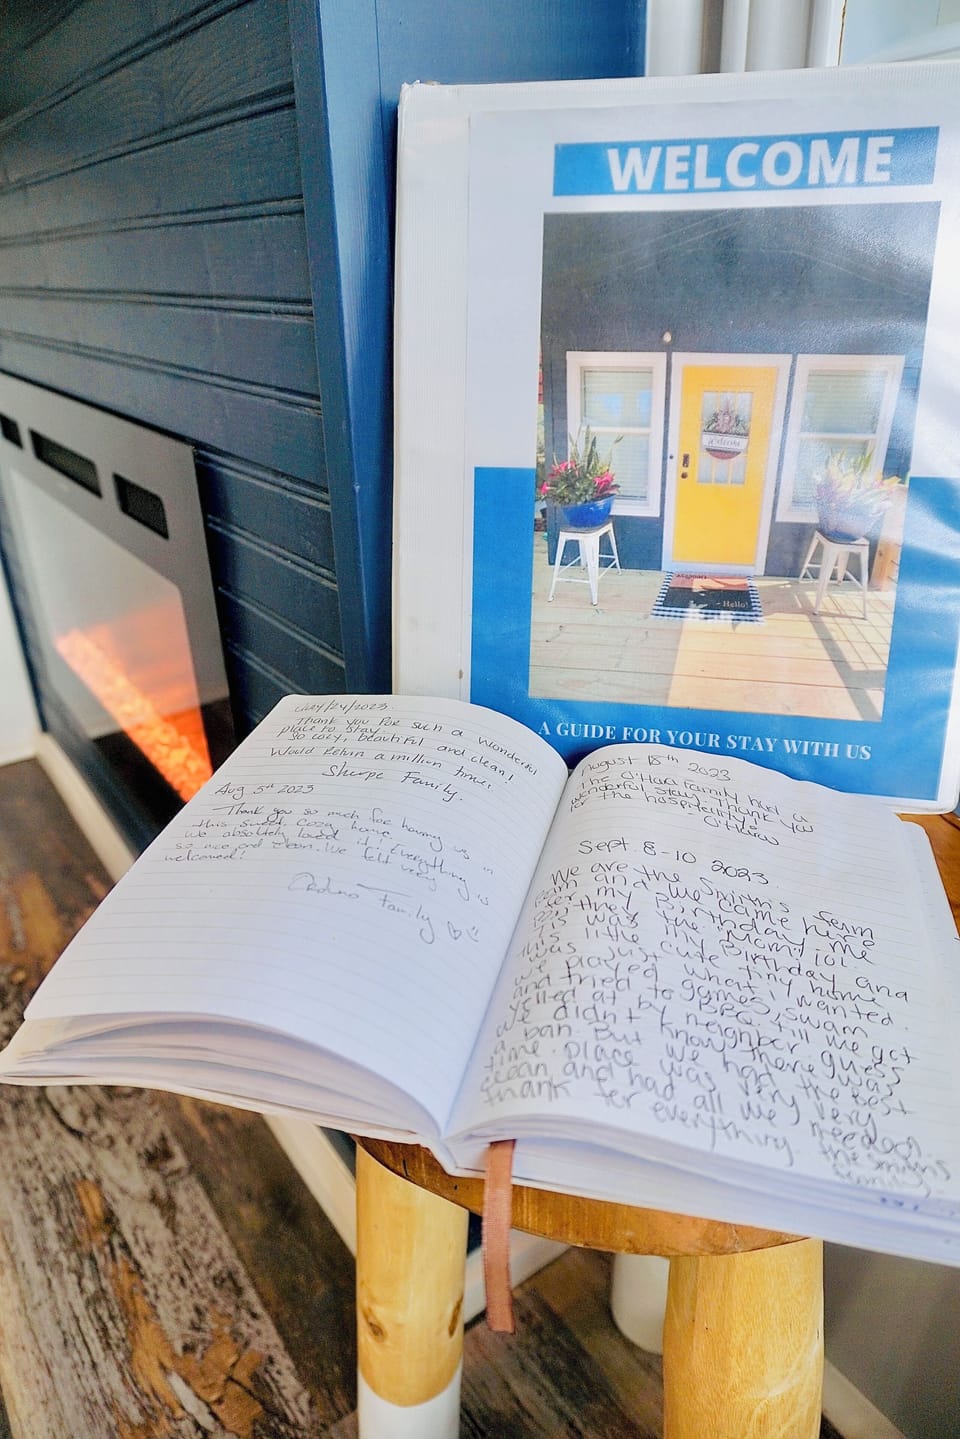 WELCOME
Welcome
Hello!
A GUIDE FOR YOUR STAY WITH US
July/24/2023.
Thank you for such a wonderful
place to stay.
So cozy, beautiful and clean!
Would Return a million times!
Sharpe Family.
Aug 5th 2023
Thank you so much for having us in
this sweet, cozy home.
We absolutely loved it! Everything is
so nice and clean. We felt very
welcomed!
Family
August 18th 2023
The O'Hara Family had a
wonderful stay. Thank you
for the hospitality.
- O'Haras
Sept. 8-10 2023
We are the Smith's
and we came here
for my Birthday. me
Tis was my Birthday and
this little cute tiny home
was just what I wanted.
we played games, swam
and tried to BBQ till we got
yelled at by neighbor guess
we didn't know there was
a ban. But we had the best
time. place was very very
clean and had all we needed.
thank for everything. The Smith's
family